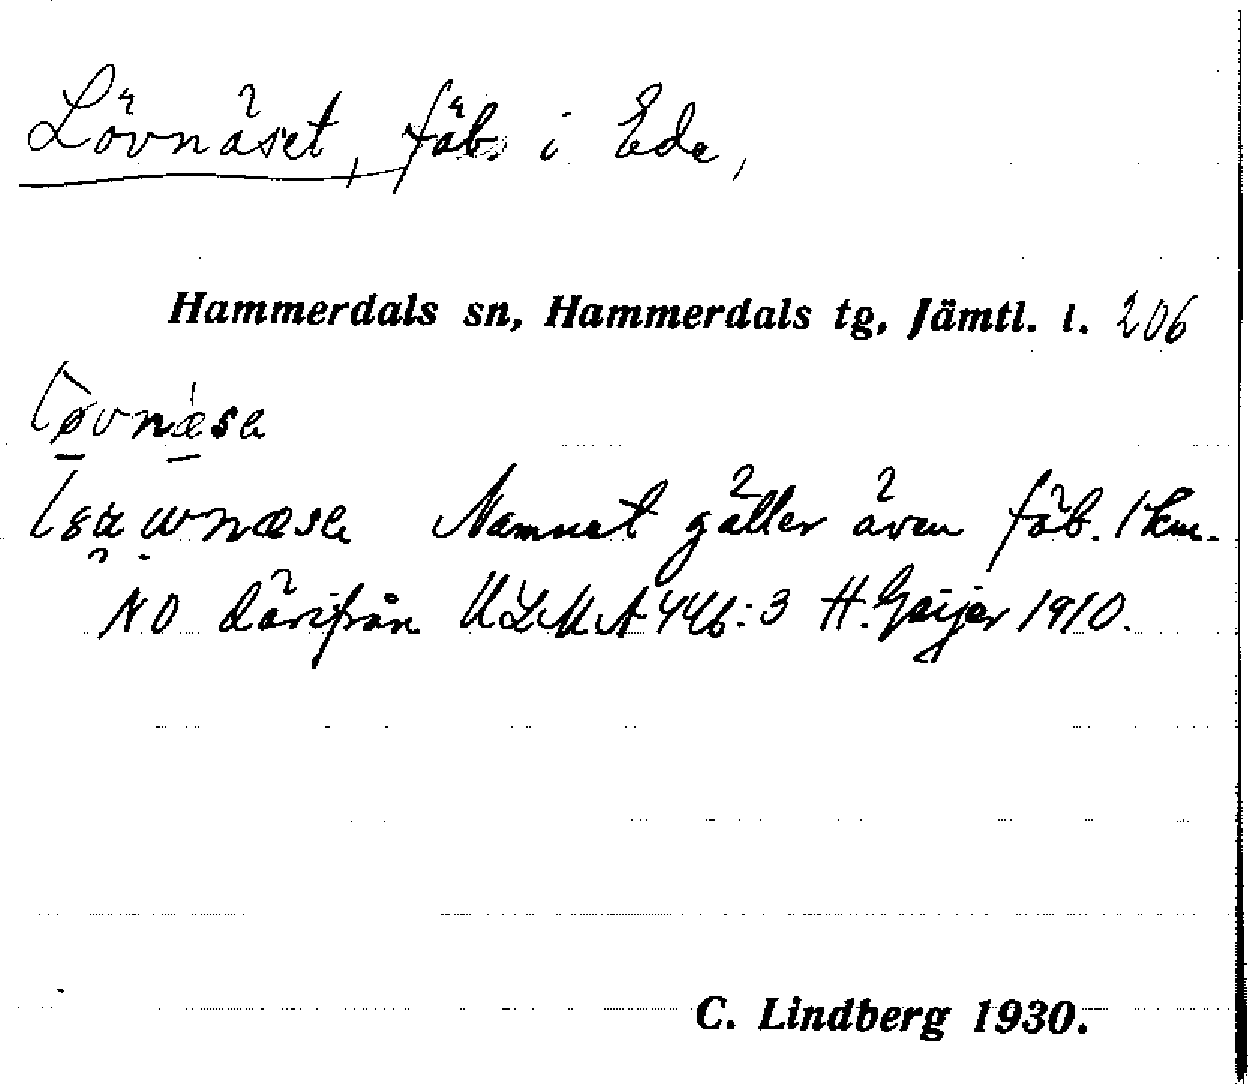 Lövnäset, fäb. i Ede,
Hammerdals sn, Hammerdals tg, Jämtl. l. 206
Namnet gäller även fäb. 1 km.
NO därifrån ULMA 446:3 H. Geijer 1910.
C. Lindberg 1930.